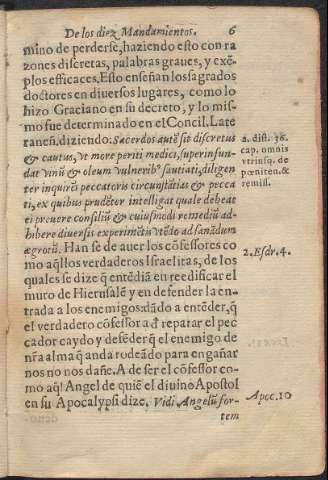 De los diez Mandamientos. 6
mino de perderse, haziendo esto con ra
zones discretas, palabras graues, y exẽ-
plos efficaces. Esto enseñan los sagrados
doctores en diuersos lugares, como lo
hizo Graciano en su decreto, y lo mis-
mo fue determinado en el Concil. Late
ranen̄. diziendo: Sacerdos autẽ sit discretus
& cautus, vt more periti medici, superinfun-
dat vinũ & oleum vulneribꝰ sautiati, diligen
ter inquirẽs peccatoris circunstãtias & pecca
ti, ex quibus prudẽter intelligat quale debeat
ei prȩuere consiliũ & cuiusmodi remediũ ad-
hibere diuersis experimẽtis vtẽdo ad sanãdum
ægrotũ. Han se de auer los cõfessores co
mo aq̃llos verdaderos Israelitas, de los
quales se dize q̃ entẽdiã en reedificar el
muro de Hierusalẽ y en defender la en-
trada a los enemigos: dãdo a entẽder, q̃
el verdadero cõfessor a đ reparar el pec
cador caydo y defẽder q̃ el enemigo de
nr̃a alma q̃ anda rodeãdo para engañar
nos no nos dañe. A de ser el cõfessor co-
mo aq̃l Angel de quiẽ el diuino Apostol
en su Apocalypsi dize, Vidi Angelũ for-
tem
2. dist. 38.
cap. omnis
vtriusq. de
pœniten. &
remiss.
2. Esdr. 4.
Apoc. 10